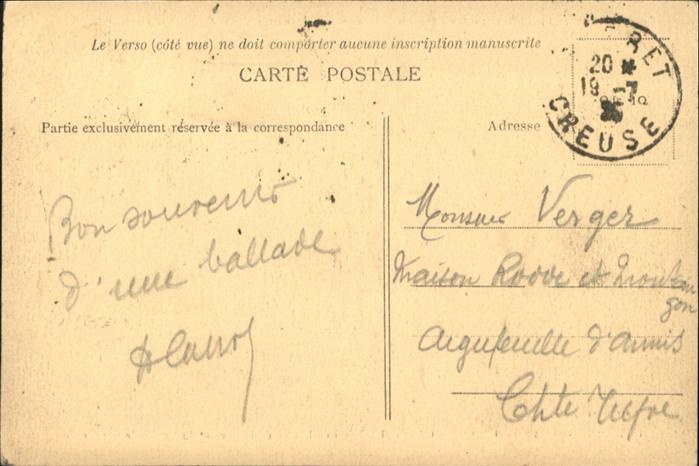 Le Verso (côté vue) ne doit comporter aucune inscription manuscrite
CARTE POSTALE
Partie exclusivement réservée à la correspondance
Adresse
RET
20 *
19 -7
CREUSE
Bon souvenir
d'une ballade
Monsieur Verger
Maison Rovve et
Aigrefeuille d'Aunis
Chte Infre